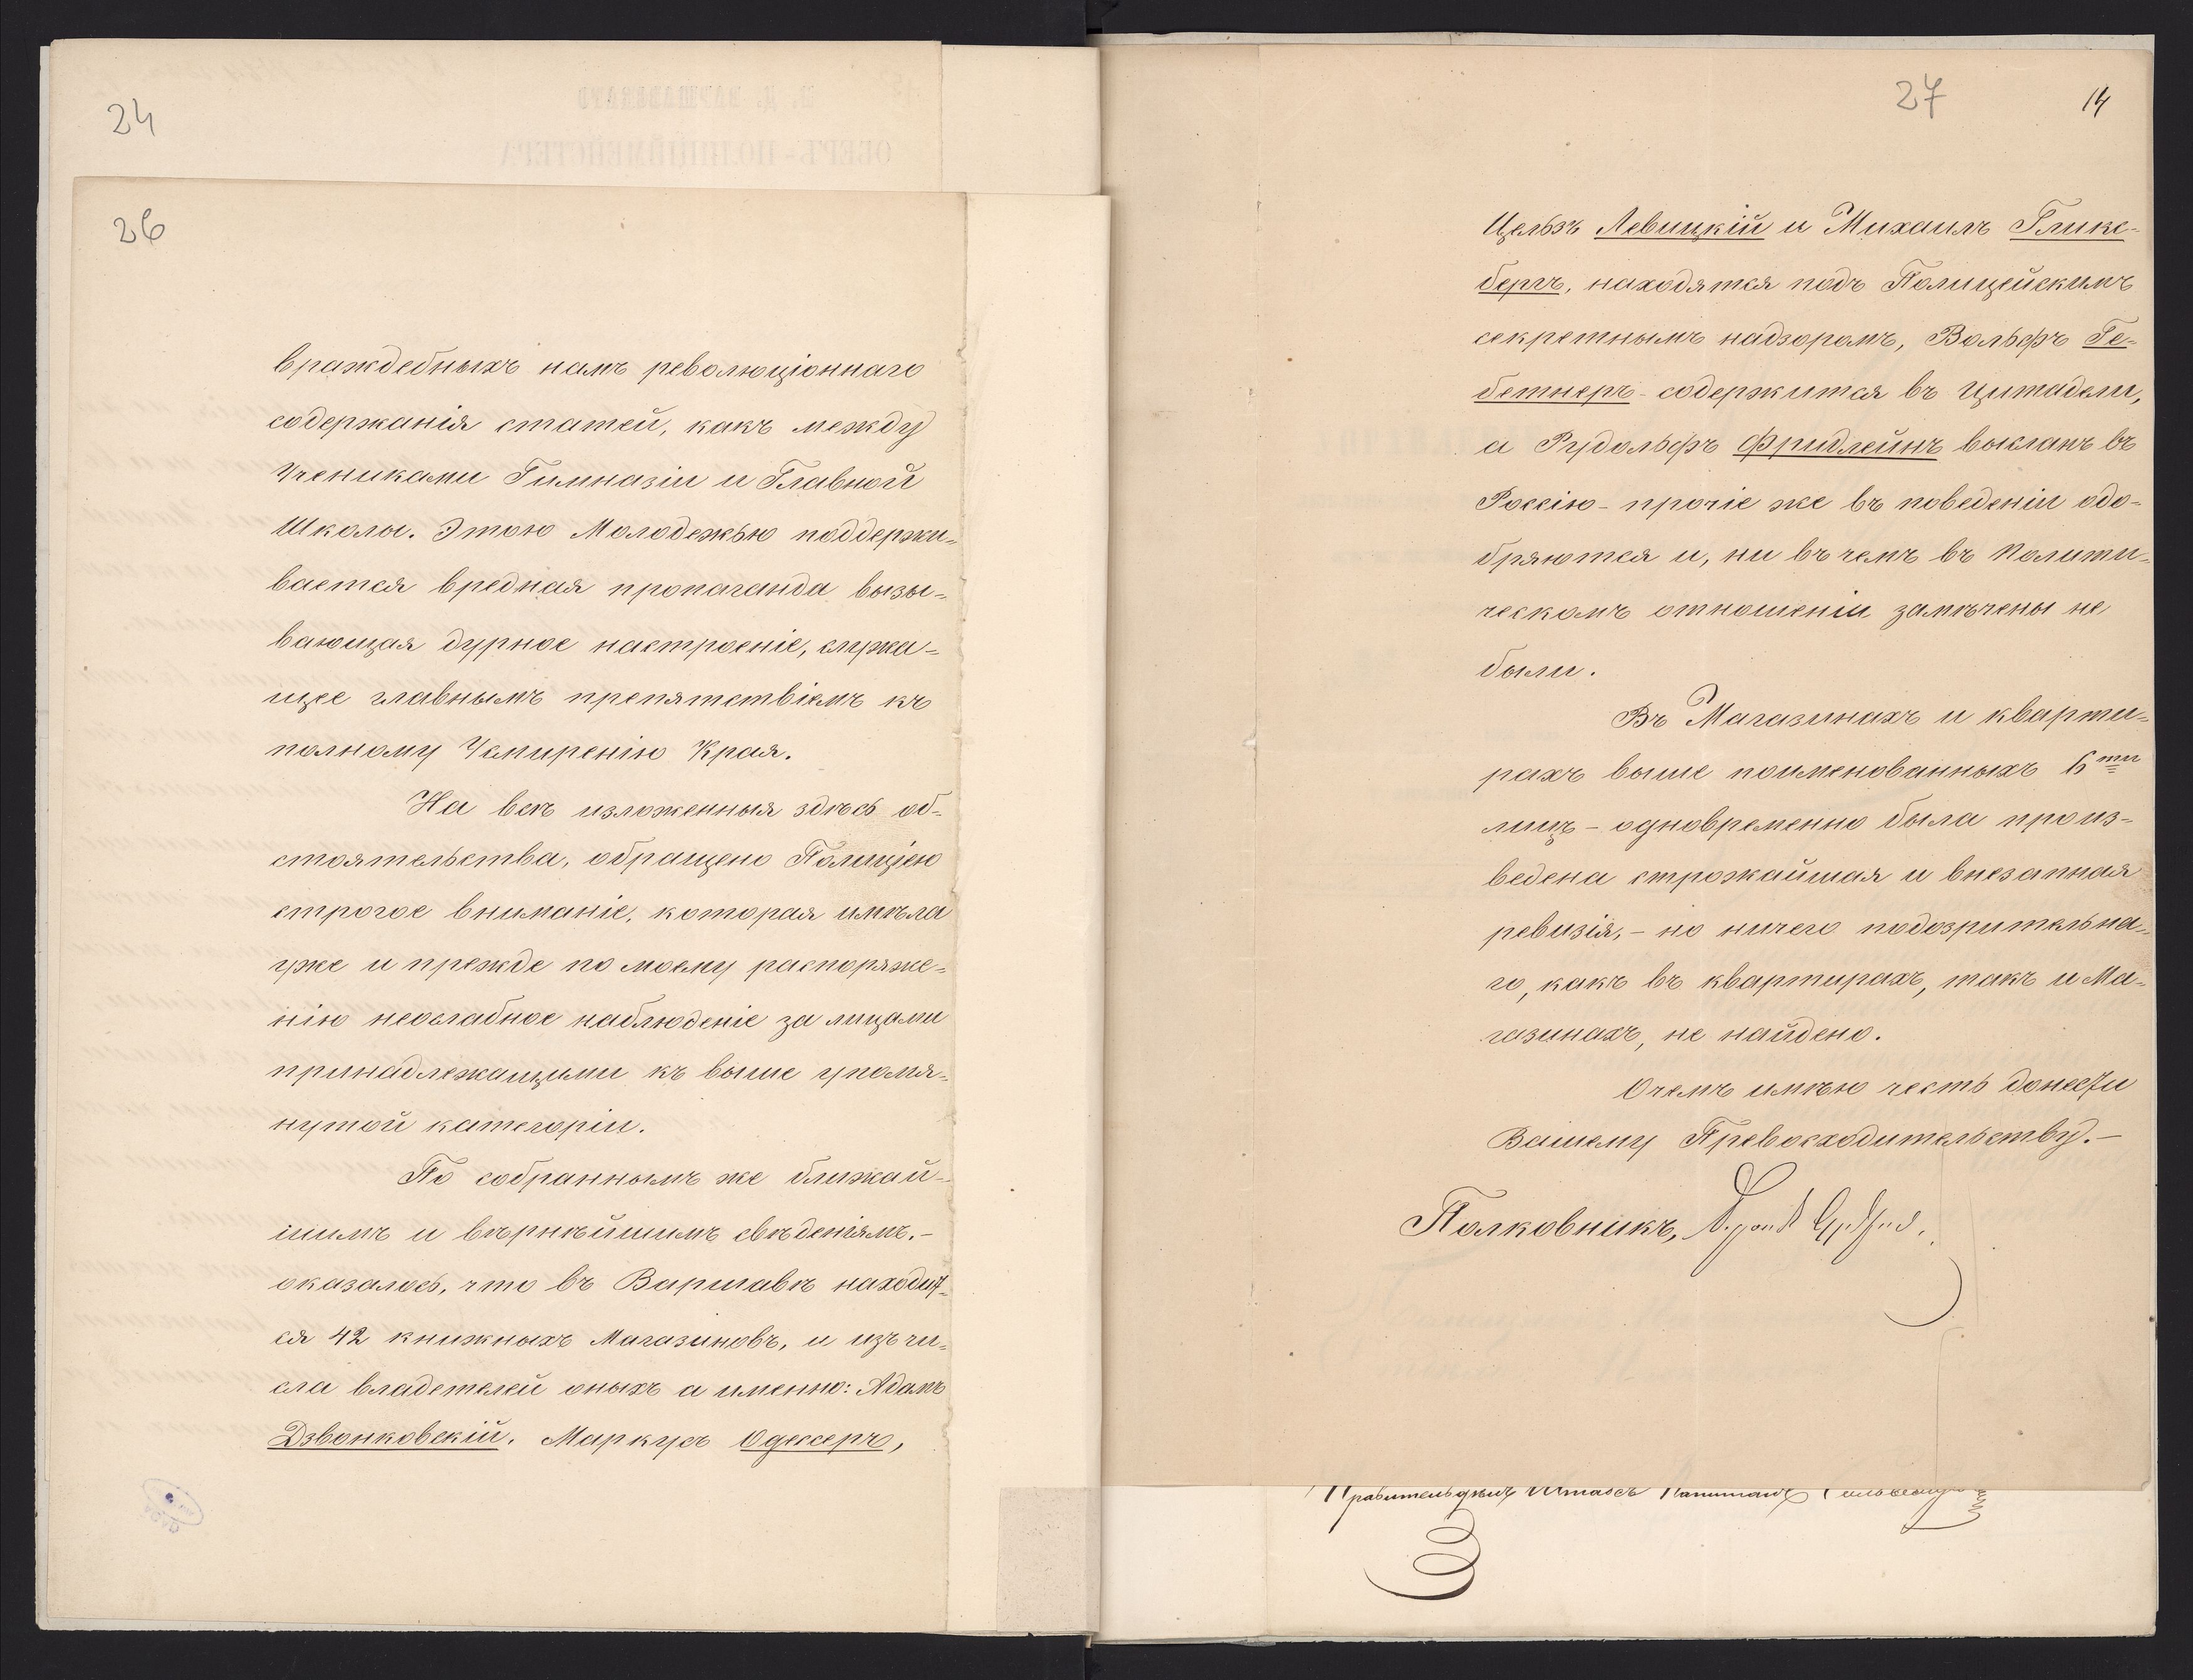 24
26
враждебныхъ намъ революціоннаго
содержанія статей, какъ между
Учениками Гимназіи и Главной
Школы. Этою Молодежью поддержи=
вается вредная пропаганда вызы=
вающая дурное настроеніе, служа=
щее главнымъ препятствіемъ къ
полному Усмиренію Края.
На всѣ изложенныя здѣсь об=
стоятельства, обращено Полиціею
строгое вниманіе, которая имѣла
уже и прежде по моему распоряже=
нію неослабное наблюденіе за лицами
принадлежащими къ выше упомя=
нутой категоріи.
По собраннымъ же ближай=
шимъ и вѣрнѣйшимъ свѣденіямъ.-
оказалось, что въ Варшавѣ находит=
ся 42 книжныхъ Магазиновъ, и изъ чи=
сла владетелей оныхъ а именно: Адамъ
Дзвонковскій, Маркусъ Оджесеръ,
27 14
Цельзъ Левицкій и Михаилъ Гликс-
бергъ, находятся подъ Полицейскимъ
секретнымъ надзоромъ, Вольфъ Ге=
бетнеръ - содержится въ Цитадели,
а Рудольфъ Фридлейнъ высланъ въ
Россію - прочіе же въ поведеніи одо=
бряются и, ни въ чемъ въ Полити=
ческомъ отношеніи замѣчены не
были.
Въ Магазинахъ и кварти=
рахъ выше поименованныхъ 6ти
лицъ - одновременно была произ=
ведена строжайшая и внезапная
ревизія, - но ничего подозрительна=
го, какъ въ квартирахъ, такъ и Ма=
газинахъ, не найдено.
О чемъ имѣю честь донести
Вашему Превосходительству.-
Полковникъ,
Правитель дѣлъ Штабсъ Капитанъ